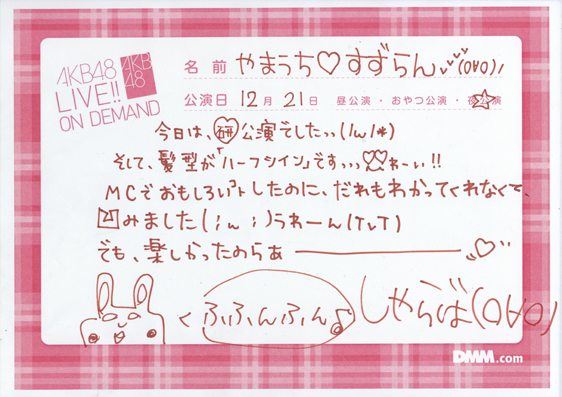 AKB48
LIVE!!
ON DEMAND
AKB
48
名前 やまうち♡すずらん (0∀0)ノ
公演日 12月21日 昼公演・おやつ公演・夜公演
今日は、㊙公演でしたっっ(ﾉω\*)
そして、髪型が「ハーフツイン」ですっっっ わーい!!
MCでおもしろいことしたのに、だれもわかってくれなくて、
凹みました(;ω;)うわーん(TvT)
でも、楽しかったのらぁ――――――♡
<ふふんふん♪
しゃらば(0∀0)
DMM.com